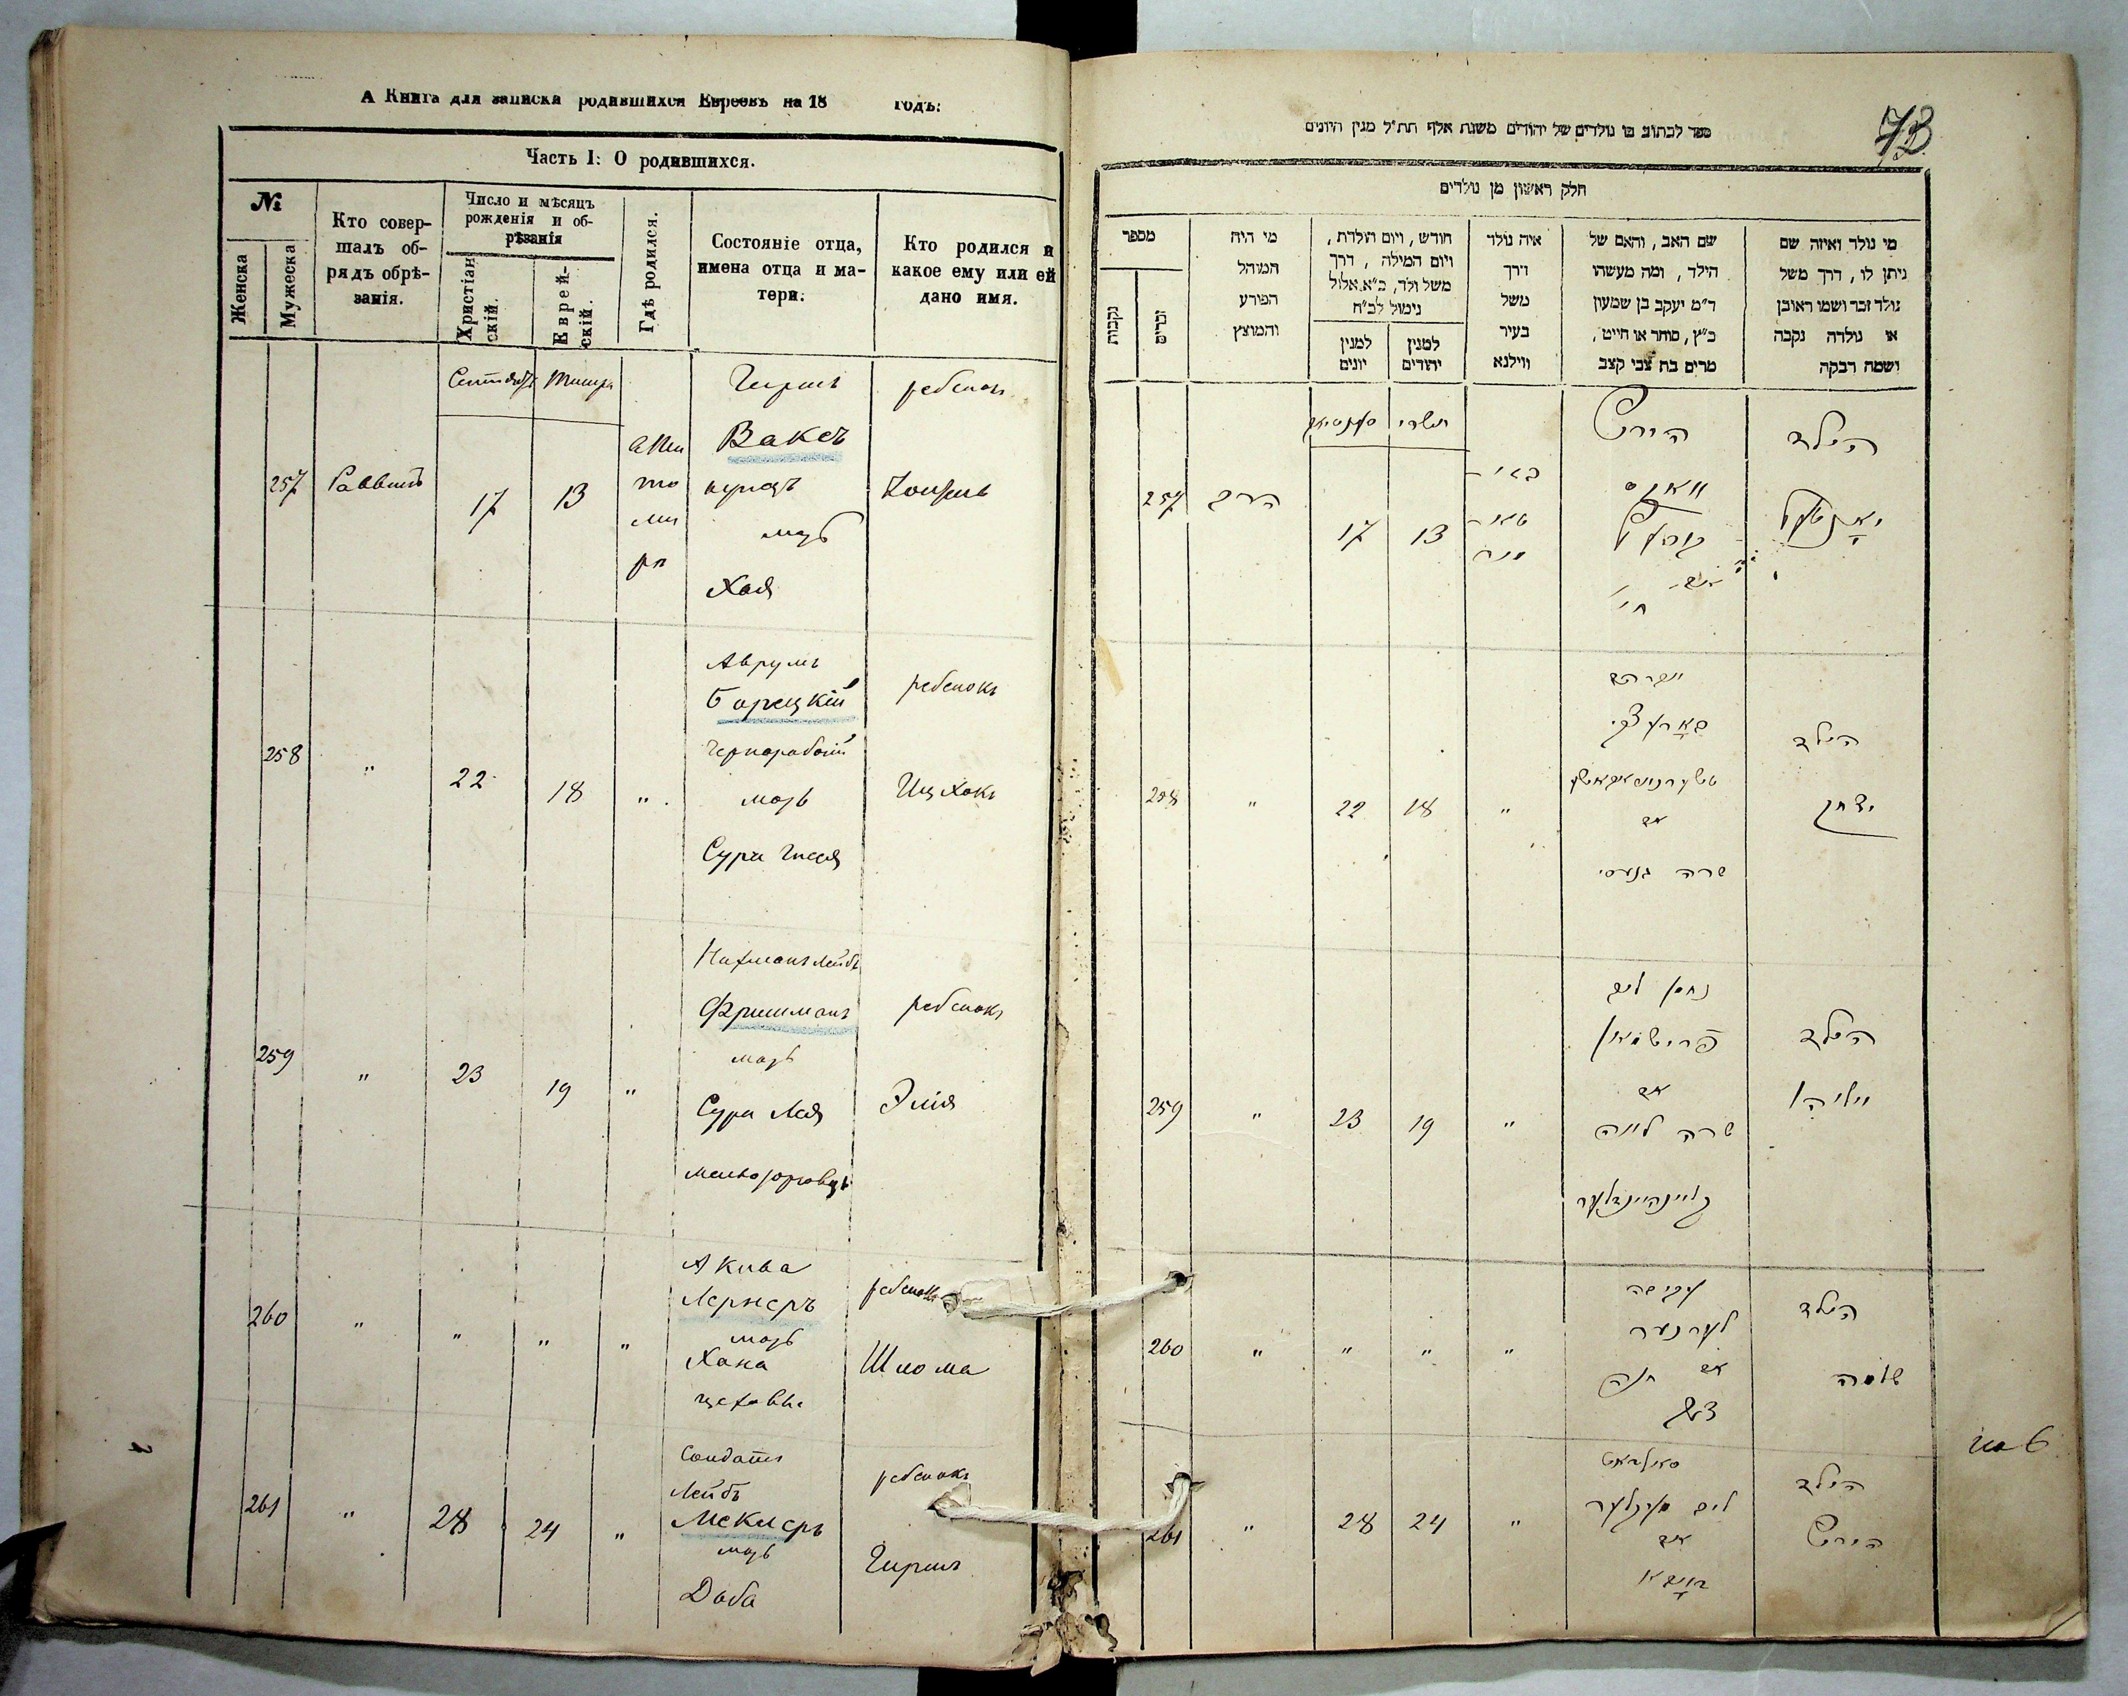 А Книга для записки родившихся Евреевъ на 18 годъ:
Часть I: О родившихся.
№
Женска
Мужеска
Кто совер-
шалъ об-
рядъ обрѣ-
занія.
Число и мѣсяцъ
рожденія и об-
рѣзанія
Христіан
скій.
Еврей-
скій.
Гдѣ родился.
Состояніе отца,
имена отца и ма-
тери.
Кто родился и
какое ему или ей
дано имя.
257
Раввинъ
17
13
Гиршъ
Ваксъ
купецъ
мать
Хая
ребенокъ
258
"
22
18
"
Аврумъ
Борецкій
Чернорабочій
мать
Сура Гнеся
ребенокъ
Ицхокъ
259
"
23
19
"
Нахманъ Лейбъ
Фришманъ
мать
Сура Лея
ребенокъ
Элія
260
"
"
"
"
Акива
Лернеръ
мать
Хана
ребенокъ
Шлома
261
"
28
24
"
Солдатъ
Лейбъ
Меклеръ
мать
Доба
ребенокъ
Гиршъ
73
ספר לכתוב בו נולדים של יהודים משנת אלף תת״ל מנין היונים
חלק ראשון מן נולדים
מספר
נקבות
זכרים
מי היה
המוהל
הפורע
והמוצץ
חודש, ויום הולדת,
ויום המילה, דרך
משל ולד, כ״א אלול
נימול לכ״ח
למנין
יונים
למנין
יהודים
איה נולד
דרך
משל
בעיר
ווילנא
שם האב, והאם של
הילד, ומה מעשהו
ד״מ יעקב בן שמעון
כ״ץ, סוחר או חייט,
מרים בת צבי קצב
מי נולד ואיזה שם
ניתן לו, דרך משל
נולד זכר ושמו ראובן
או נולדה נקבה
ושמה רבקה
תשרי
257
הרב
17
13
הירש
וואקס
הילד
258
"
22
18
"
אם
שרה גנעסי
הילד
יצחק
259
"
23
19
"
נחמן ליב
פרישמאן
אם
שרה לאה
הילד
260
"
"
"
"
עקיבה
לערנער
אם חנה
הילד
שלמה
261
"
28
24
"
סאלדאט
ליב מעקלער
אם
דאבא
הילד
הירש